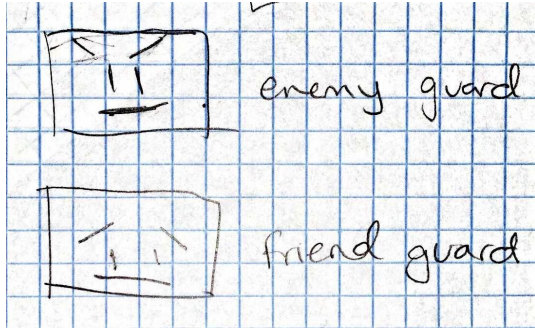 enemy guard
friend guard